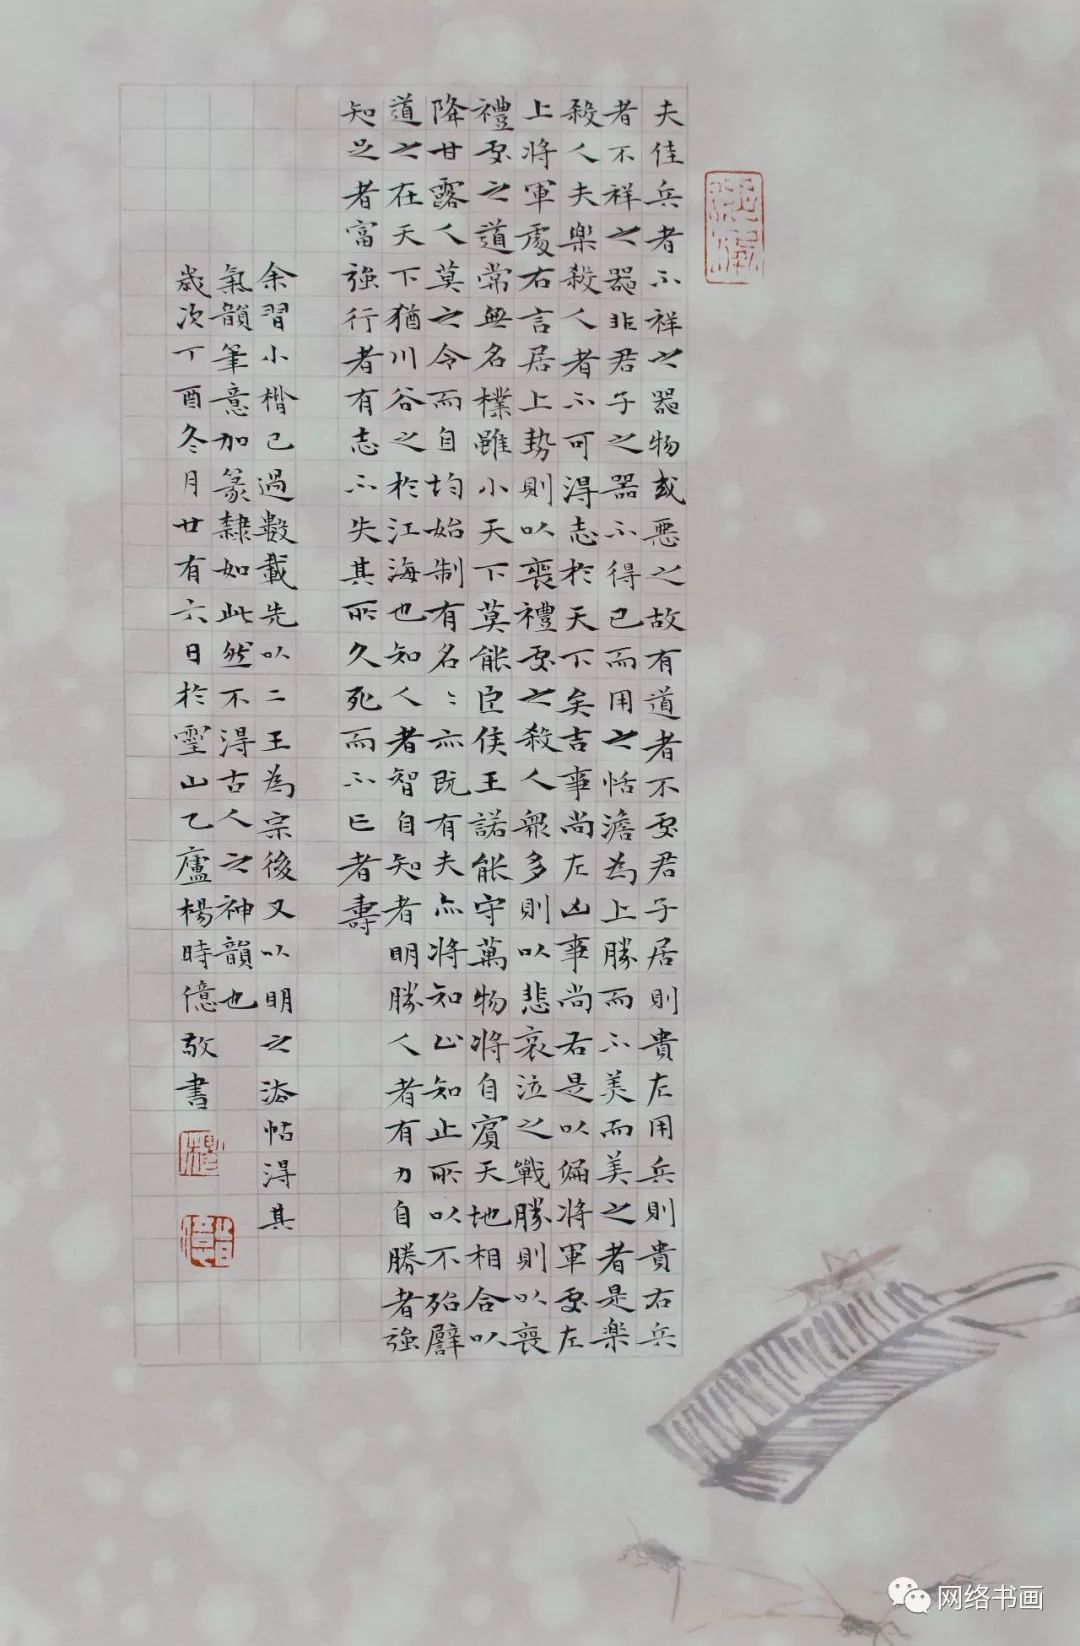 夫佳兵者不祥之器物或惡之故有道者不處君子居則貴左用兵則貴右兵
者不祥之器非君子之器不得已而用之恬澹為上勝而不美而美之者是樂
殺人夫樂殺人者不可得志於天下矣吉事尚左凶事尚右是以偏將軍處左
上將軍處右言居上勢則以喪禮處之殺人眾多則以悲哀泣之戰勝則以喪
禮處之道常無名樸雖小天下莫能臣侯王諾能守萬物將自賓天地相合以
降甘露人莫之令而自均始制有名〻亦既有夫亦將知止知止所以不殆譬
道之在天下猶川谷之於江海也知人者智自知者明勝人者有力自勝者強
知足者富強行者有志不失其所久死而不亡者壽
余習小楷已過數載先以二王為宗後又以明之法帖得其
氣韻筆意加篆隸如此然不得古人之神韻也
歲次丁酉冬月廿有六日於靈山乙廬楊時億敬書
网络书画